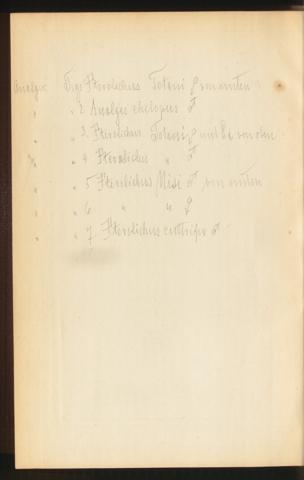 Analges Fig. 1 Pterolichus Totani ♀ von unten
" " 2 Analges chelopus ♂
" " 3 Pterolichus Totani ♀ mit Ei von oben
" " 4 Pterolichus " ♂
" " 5 Pterolichus Nisi ♂ von unten
" " 6 " " ♀
" " 7 Pterolichus ♂